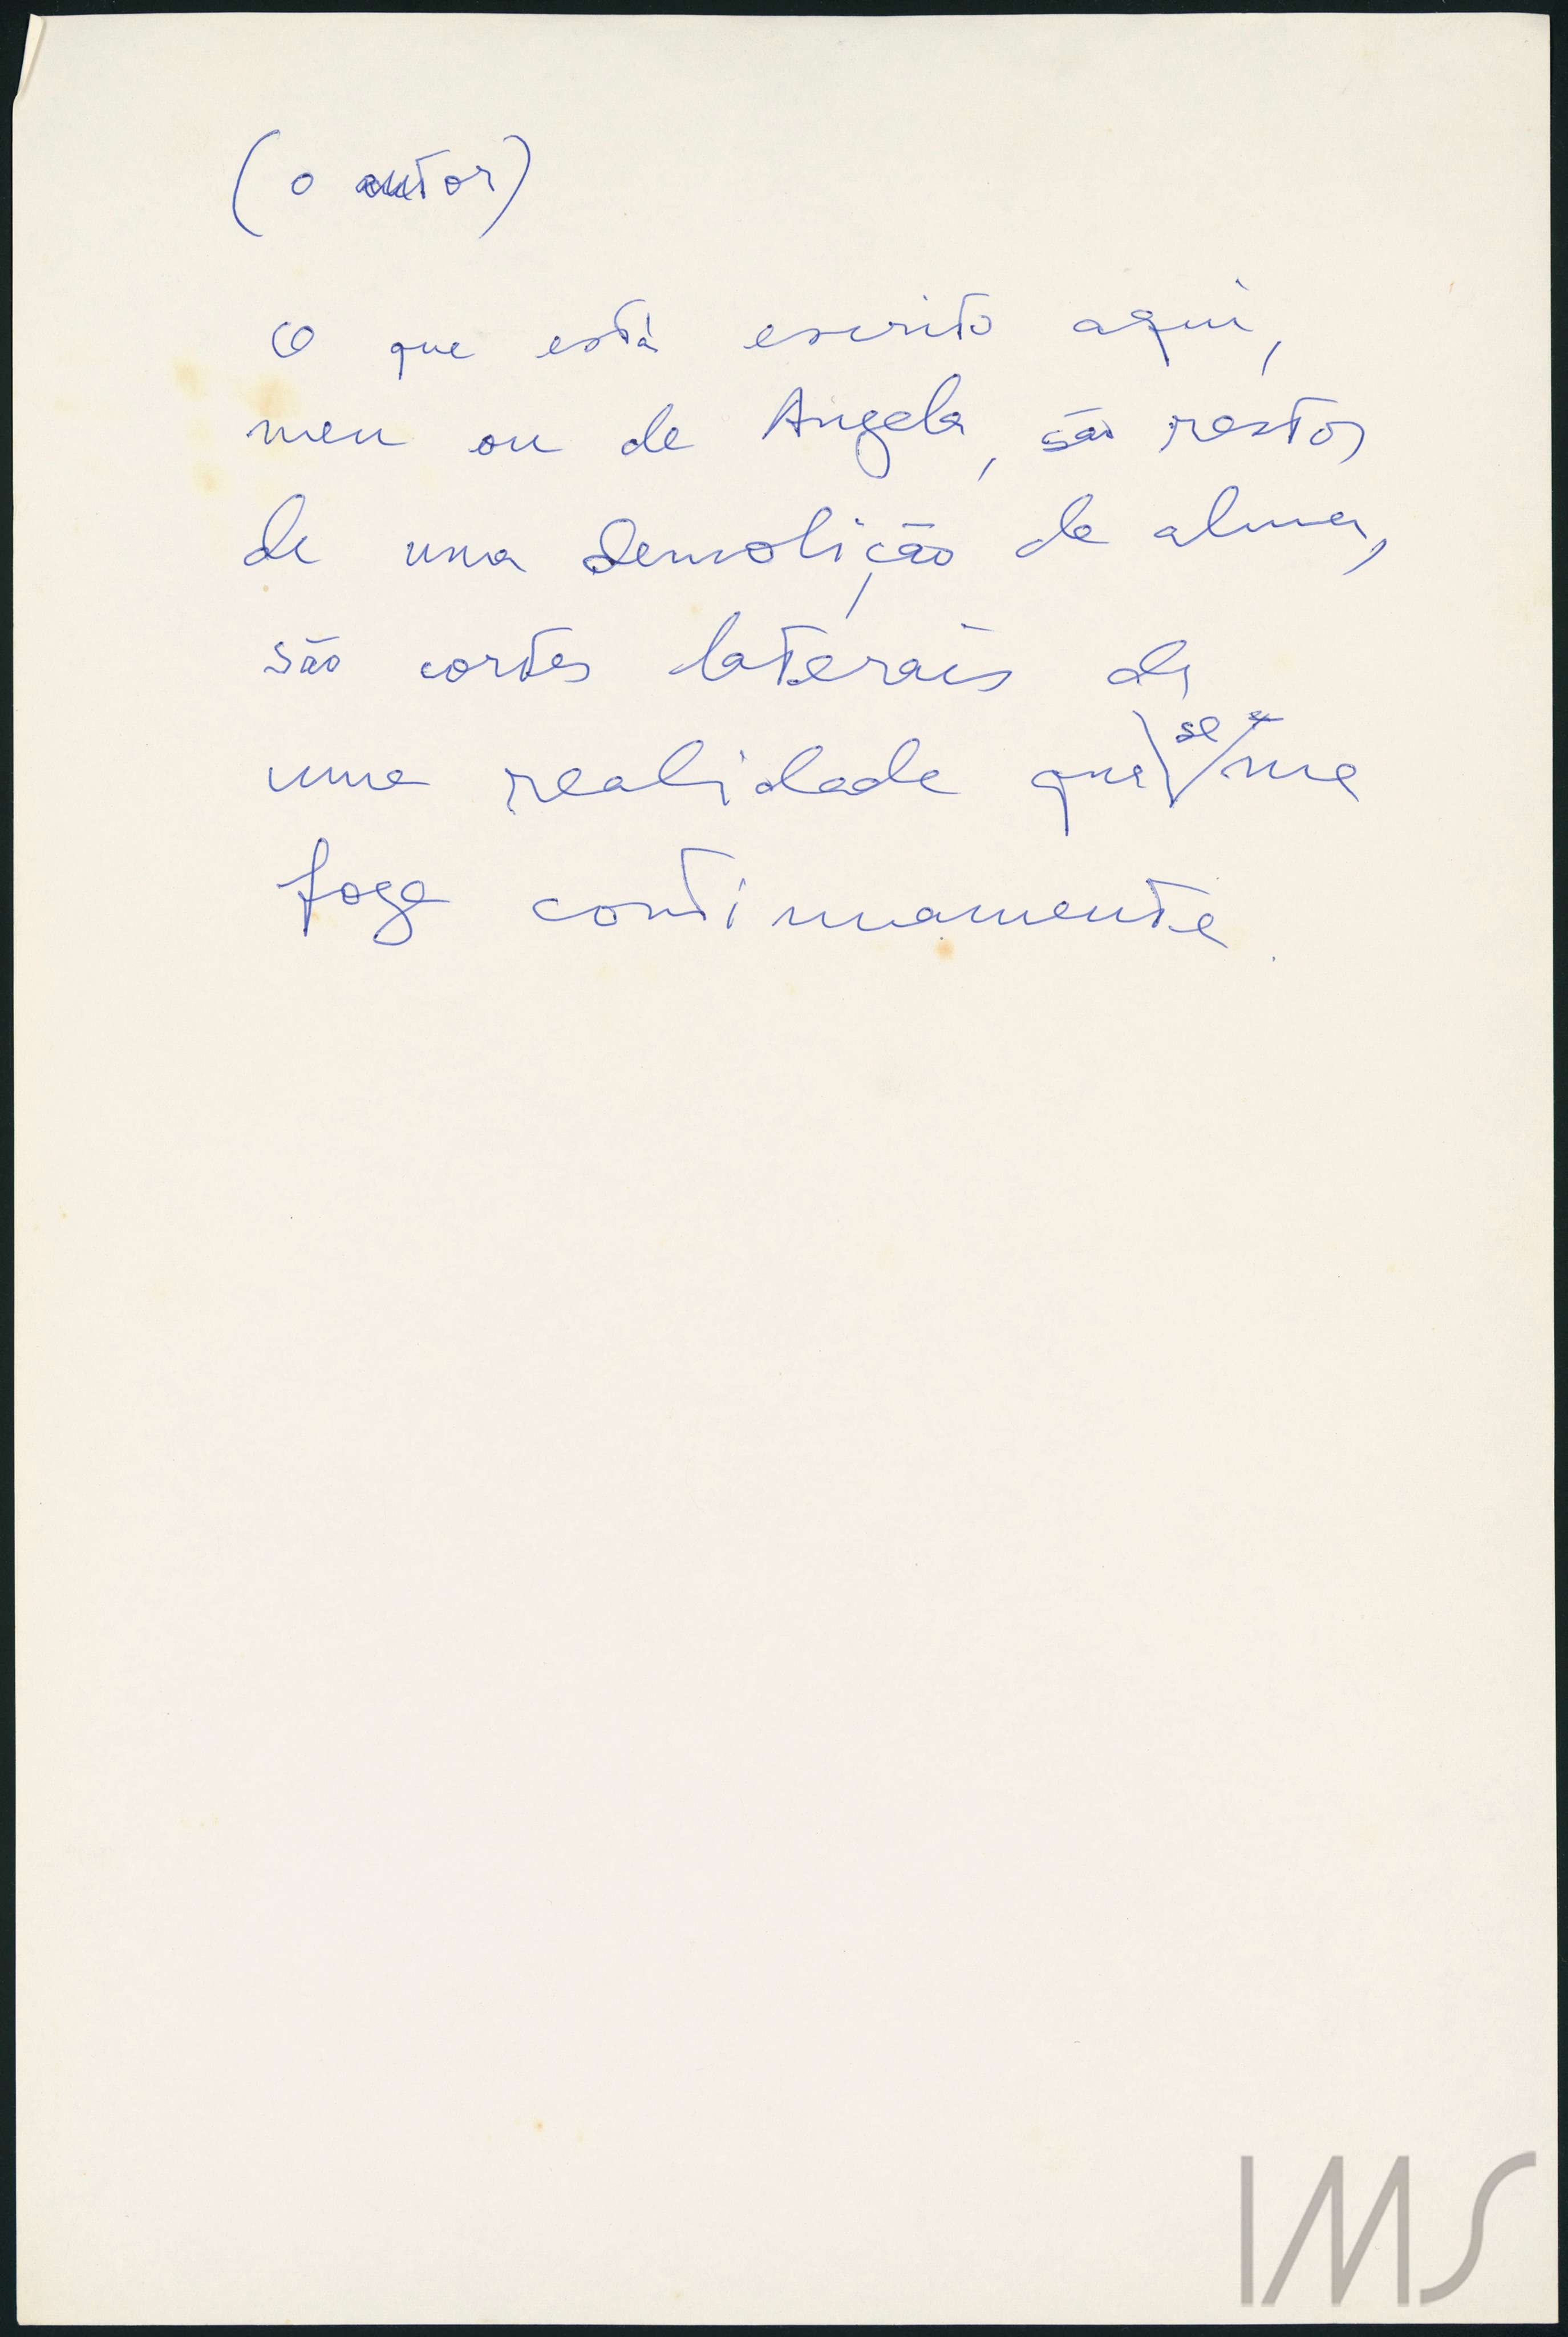 (o autor)
O que está escrito aqui,
meu ou de Angela, são restos
de uma demolição de alma,
são cortes laterais de
uma realidade que se me
foge continuamente.
IMS